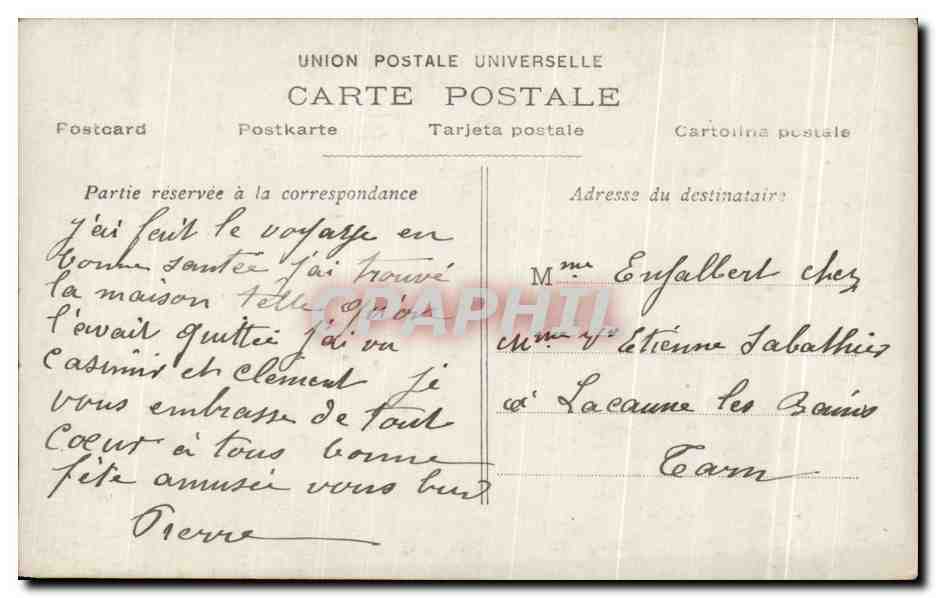 UNION POSTALE UNIVERSELLE
CARTE POSTALE
Postcard Postkarte Tarjeta postale Cartolina postale
Partie réservée à la correspondance
j'ai fait le voyage en
bonne santée j'ai trouvé
la maison telle qu'on
l'avait quittée j'ai vu
Casimir et clement je
vous embrasse de tout
coeur à tous bonne
fête amusée vous bien
Pierre
Adresse du destinataire
Mme Enjalbert chez
Mme Vve Etienne Sabathier
à Lacaune les Bains
Tarn
CPAPHIL